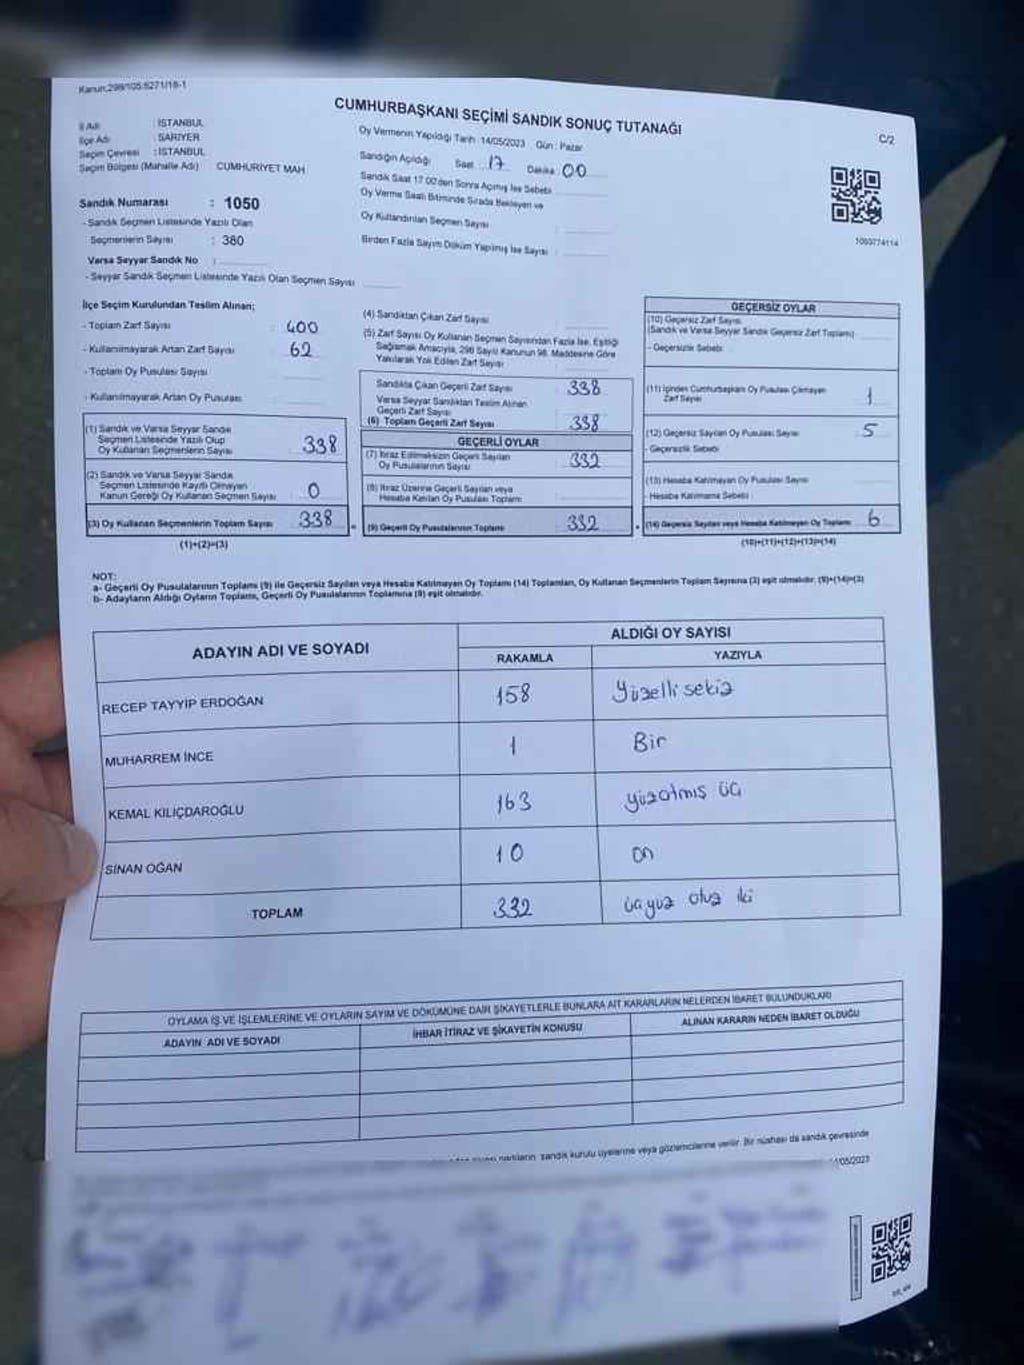 Kanun.298/105:6271/16-1
CUMHURBAŞKANI SEÇİMİ SANDIK SONUÇ TUTANAĞI
C/2
İl Adı : İSTANBUL
İlçe Adı : SARIYER
Seçim Çevresi : İSTANBUL
Seçim Bölgesi (Mahalle Adı) CUMHURİYET MAH
Sandık Numarası : 1050
- Sandık Seçmen Listesinde Yazılı Olan
Seçmenlerin Sayısı : 380
Varsa Seyyar Sandık No :
- Seyyar Sandık Seçmen Listesinde Yazılı Olan Seçmen Sayısı
Oy Vermenin Yapıldığı Tarih : 14/05/2023 Gün : Pazar
Sandığın Açıldığı Saat 17 Dakika 00
Sandık Saat 17:00'den Sonra Açmış İse Sebebi
Oy Verme Saati Bitiminde Sırada Bekleyen ve
Oy Kullandırılan Seçmen Sayısı :
Birden Fazla Sayım Döküm Yapılmış İse Sayısı :
1093774114
İlçe Seçim Kurulundan Teslim Alınan;
- Toplam Zarf Sayısı : 400
- Kullanılmayarak Artan Zarf Sayısı : 62
- Toplam Oy Pusulası Sayısı :
- Kullanılmayarak Artan Oy Pusulası :
(1) Sandık ve Varsa Seyyar Sandık
Seçmen Listesinde Yazılı Olup
Oy Kullanan Seçmenlerin Sayısı : 338
(2) Sandık ve Varsa Seyyar Sandık
Seçmen Listesinde Kayıtlı Olmayan
Kanun Gereği Oy Kullanan Seçmen Sayısı : 0
(3) Oy Kullanan Seçmenlerin Toplam Sayısı : 338
(1)+(2)=(3)
(4) Sandıktan Çıkan Zarf Sayısı :
(5) Zarf Sayısı Oy Kullanan Seçmen Sayısından Fazla İse, Eşitliği
Sağlamak Amacıyla, 298 Sayılı Kanunun 98. Maddesine Göre
Yakılarak Yok Edilen Zarf Sayısı :
Sandıkta Çıkan Geçerli Zarf Sayısı : 338
Varsa Seyyar Sandıktan Teslim Alınan
Geçerli Zarf Sayısı :
(6) Toplam Geçerli Zarf Sayısı : 338
GEÇERLİ OYLAR
(7) İtiraz Edilmeksizin Geçerli Sayılan
Oy Pusulalarının Sayısı : 332
(8) İtiraz Üzerine Geçerli Sayılan veya
Hesaba Katılan Oy Pusulası Toplamı :
(9) Geçerli Oy Pusulalarının Toplamı : 332
GEÇERSİZ OYLAR
(10) Geçersiz Zarf Sayısı
(Sandık ve Varsa Seyyar Sandık Geçersiz Zarf Toplamı)
- Geçersizlik Sebebi :
(11) İçinden Cumhurbaşkanı Oy Pusulası Çıkmayan
Zarf Sayısı : 1
(12) Geçersiz Sayılan Oy Pusulası Sayısı : 5
- Geçersizlik Sebebi
(13) Hesaba Katılmayan Oy Pusulası Sayısı
- Hesaba Katılmama Sebebi :
(14) Geçersiz Sayılan veya Hesaba Katılmayan Oy Toplamı : 6
(10)+(11)+(12)+(13)=(14)
NOT:
a- Geçerli Oy Pusulalarının Toplamı (9) ile Geçersiz Sayılan veya Hesaba Katılmayan Oy Toplamı (14) Toplamları, Oy Kullanan Seçmenlerin Toplam Sayısına (3) eşit olmalıdır. (9)+(14)=(3)
b- Adayların Aldığı Oyların Toplamı, Geçerli Oy Pusulalarının Toplamına (9) eşit olmalıdır.
ADAYIN ADI VE SOYADI ALDIĞI OY SAYISI
RAKAMLA YAZIYLA
RECEP TAYYİP ERDOĞAN 158 Yüzelli sekiz
MUHARREM İNCE 1 Bir
KEMAL KILIÇDAROĞLU 163 yüzatmış üç
SİNAN OĞAN 10 on
TOPLAM 332 üçyüz otuz iki
OYLAMA İŞ VE İŞLEMLERİNE VE OYLARIN SAYIM VE DÖKÜMÜNE DAİR ŞİKAYETLERLE BUNLARA AİT KARARLARIN NELERDEN İBARET BULUNDUKLARI
ADAYIN ADI VE SOYADI İHBAR İTİRAZ VE ŞİKAYETİN KONUSU ALINAN KARARIN NEDEN İBARET OLDUĞU
partilerin, sandık kurulu üyelerine veya gözlemcilerine verilir. Bir nüshası da sandık çevresinde
/05/2023